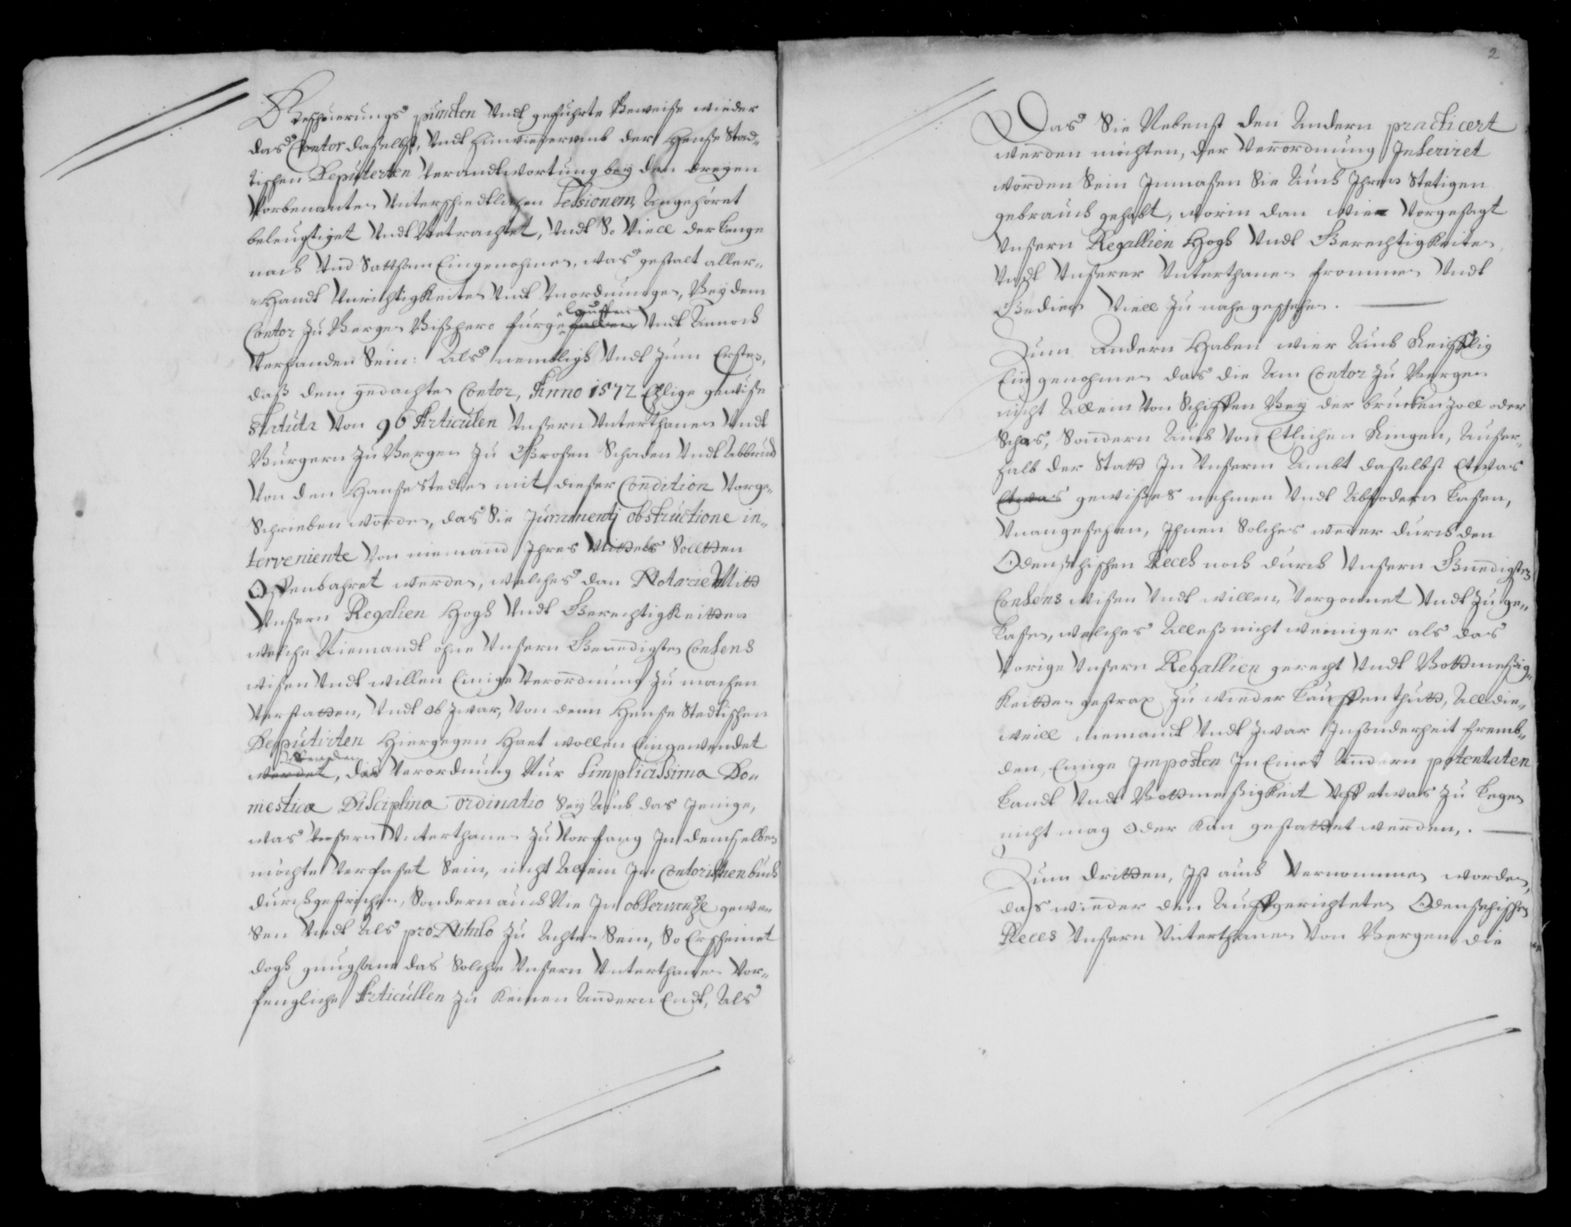 Beschwierungs puncten Undt gefuhrte Beweisse wieder
das Contor daselbst, Undt hinwieserumb der Hense Stad-
tischen Deputerten Verandtwortung bey den dreyen
Vorbenanten Unterschiedtlichen Sessionen, Angehöret
beleuchtiget Undt Betrachtet, Undt So Viell der lenge
nach Und Sattsam Eingenohmen, was gestalt aller-
-Handt Unrichtigkeiten Undt Unordnungen, Bey dem
Contor Zu Bergen Bißhero furgelauffen Undt Annoch
Verhanden Sein: Als nemtligh Undt Zum Ersten,
daß dem gedachten Contor, Anno 1572 Etzlige gewisse
Statuta Von 96 Articulen Unsern Unterthanen Undt
Burgern Zu Bergen Zu Grosen Schaden Undt Abbruch
Von den Hanse Stedten mit dieser Condition Vorge-
Schrieben worden, das Sie Juramenti obstructione in-
terveniente Von niemand Ihres Mittels Soltten
Offenbahret werden, welches dan Notorie Mitt
Unsern Regalien Hogh Undt Gerechtigkeitten
welche Niemandt ohne Unsern Genedigsten Consens
wisen Undt willen Einige Verordnung Zu machen
Verstatten, Undt ob Zwar, Von denn Hense Stedtischen
Deputirten Hiergegen Haet wollen Eingewendet
werden, die Verordnung Nur Simplicissima Do-
mestica Disciplina ordinatio Sey Auch das Jenige,
was Unsern Unterthanen Zu Vorfang In demselben
möchte Verfasset Sein, nicht Allein In Contorischen buch
durchgestrichen, Sondern auch Nie In observantze gewe-
sen Undt Als pro Nihilo Zu Achten Sein, So Erscheinet
dogh gnugsam das Solche Unsern Unterthanen Vor-
fengliche Articullen Zu Keinen Andern Endt, Als
2
Das Sie Nebenst den Andern practicert
werden möchten, der Verordnung Inseriret
worden Sein Inmasen Sie Auch Ihren Stetigen
gebrauch gehabt, worin dan wie Vorgesagt
Unsern Regallien Hogh Undt Gerechtigkeiten
Undt Unserer Unterthanen frommen Undt
Gedien Viell Zu nahe geschehen.
Zum Andern Haben wier Auch
Ein genohmen das die Am Contor Zu Bergen
nicht Allein Von Schiffen Bey der brucken Zoll oder
Schos, Sondern Auch Von Etlichen Dingen, Auser-
halb der Statt In Unserm Ambt daselbst Etwas
etwas gewisses nehmen Undt Abfodern Lasen,
Unangesehen, Ihnen Solches weder durch den
Odensehischen Reces noch durch Unsern Gnedigsten
Consens wisen Undt willen, Vergonnet Undt Zuge-
Lasen, welches Alleß nicht weiniger als das
Vorige Unsern Regallien gerecht Undt Bottmessig-
Keitten gestrax Zu wieder Lauffen thutt, Alldie-
weill niemandt Undt Zwar Insonderheit fremb-
den, Einige Imposten In Eines Andern potentaten
Landt Undt Bottmeßigkeit Uff etwas Zu Legen
nicht mag oder Kan gestattet werden.
Zum dritten, Ist auch Vernommen worden,
das wieder den Auffgerichteten Odensehischen
Reces Unsern Unterthanen Von Bergen, die